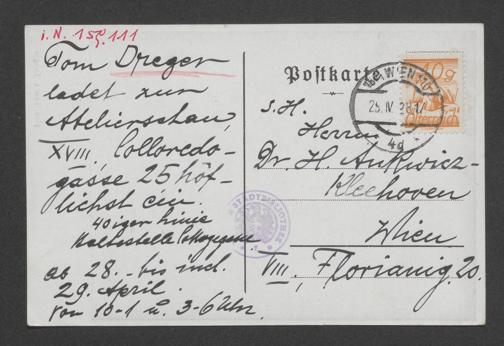 i. N. 159.111
Tom Dreger
ladet zur
Atelierschau,
XVIII, Colloredo-
gasse 25 höf-
lichst ein.
40iger Linie
Haltestelle
ab 28. - bis incl.
29. April.
von 10-1 u. 3-6 Uhr.
Postkarte
WIEN
25. IV. 28
4d
40g
S. H.
Herrn
Dr. H. Ankwicz-
Kleehoven
Wien
VIII., Florianig. 20.